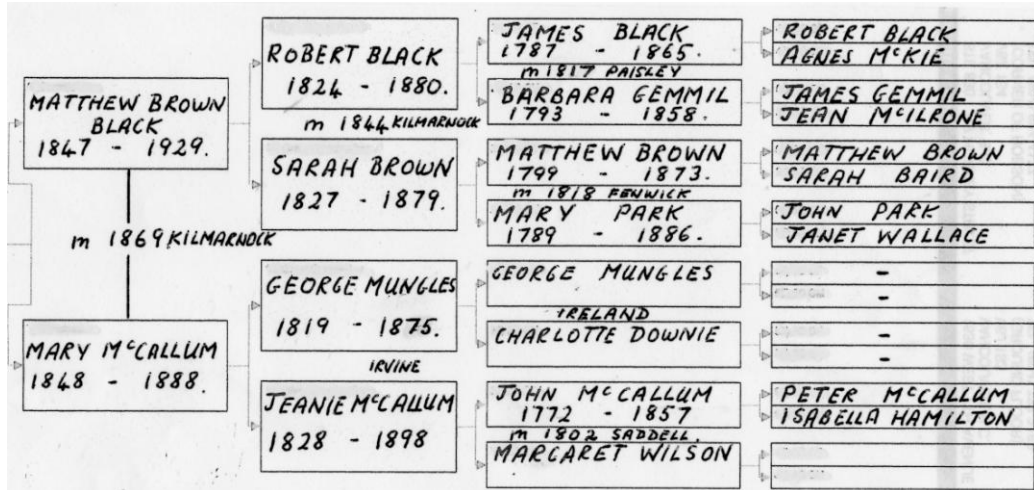 MATTHEW BROWN
BLACK
1847 - 1929.
m 1869 KILMARNOCK
MARY McCALLUM
1848 - 1888.
ROBERT BLACK
1824 - 1880.
m 1844 KILMARNOCK
SARAH BROWN
1827 - 1879.
GEORGE MUNGLES
1819 - 1875.
IRVINE
JEANIE McCALLUM
1828 - 1898
JAMES BLACK
1787 - 1865.
m 1817 PAISLEY
BARBARA GEMMIL
1793 - 1858.
MATTHEW BROWN
1799 - 1873.
m 1818 FENWICK
MARY PARK
1789 - 1886.
GEORGE MUNGLES
IRELAND
CHARLOTTE DOWNIE
JOHN McCALLUM
1772 - 1857
m 1802 SADDELL.
MARGARET WILSON
ROBERT BLACK
AGNES McKIE
JAMES GEMMIL
JEAN McILRONE
MATTHEW BROWN
SARAH BAIRD
JOHN PARK
JANET WALLACE
-
-
-
-
PETER McCALLUM
ISABELLA HAMILTON